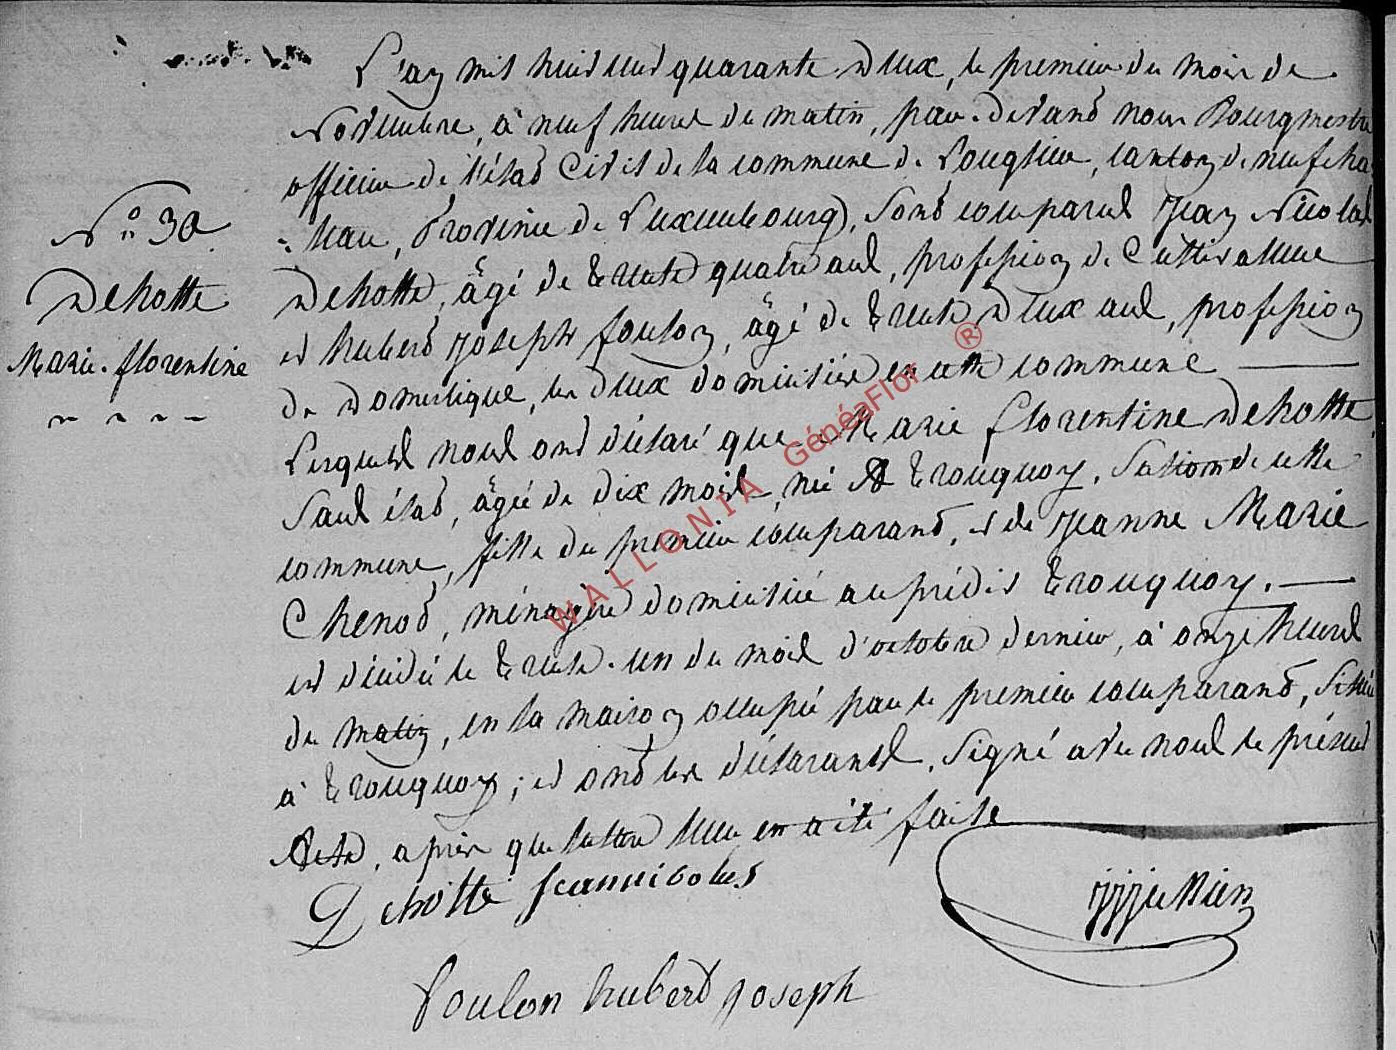 L'an mil huit cent quarante deux, le premier du mois de
Novembre, à neuf heures du matin, par-devant nous Bourgmestre
officier de l'état civil de la commune de Longlier, canton de neufcha-
-teau, province de Luxembourg, sont comparus Jean Nicolas
N° 30
Dehotte, âgé de trente quatre ans, profession de Cultivateur
Dehotte
et hubert Joseph foulon, âgé de trente deux ans, profession
Marie-florentine
de Domestique, les deux domiciliés en cette commune
Lesquels nous ont déclaré que Marie florentine Dehotte
sans état, âgée de dix mois, née à tronquoy, section de cette
commune, fille du premier comparant, et de Jeanne Marie
Chenot, ménagère domiciliée au prédit tronquoy.
est décédée le trente-un du mois d'octobre dernier, à onze heures
du matin, en la maison occupée par le premier comparant, située
à tronquoy; et ont les déclarants, signé avec nous le présent
Acte, après que lecture leur en a été faite
Dehotte Jeannicolas
foulon hubert joseph
WALLONIA GénéaFlor ®